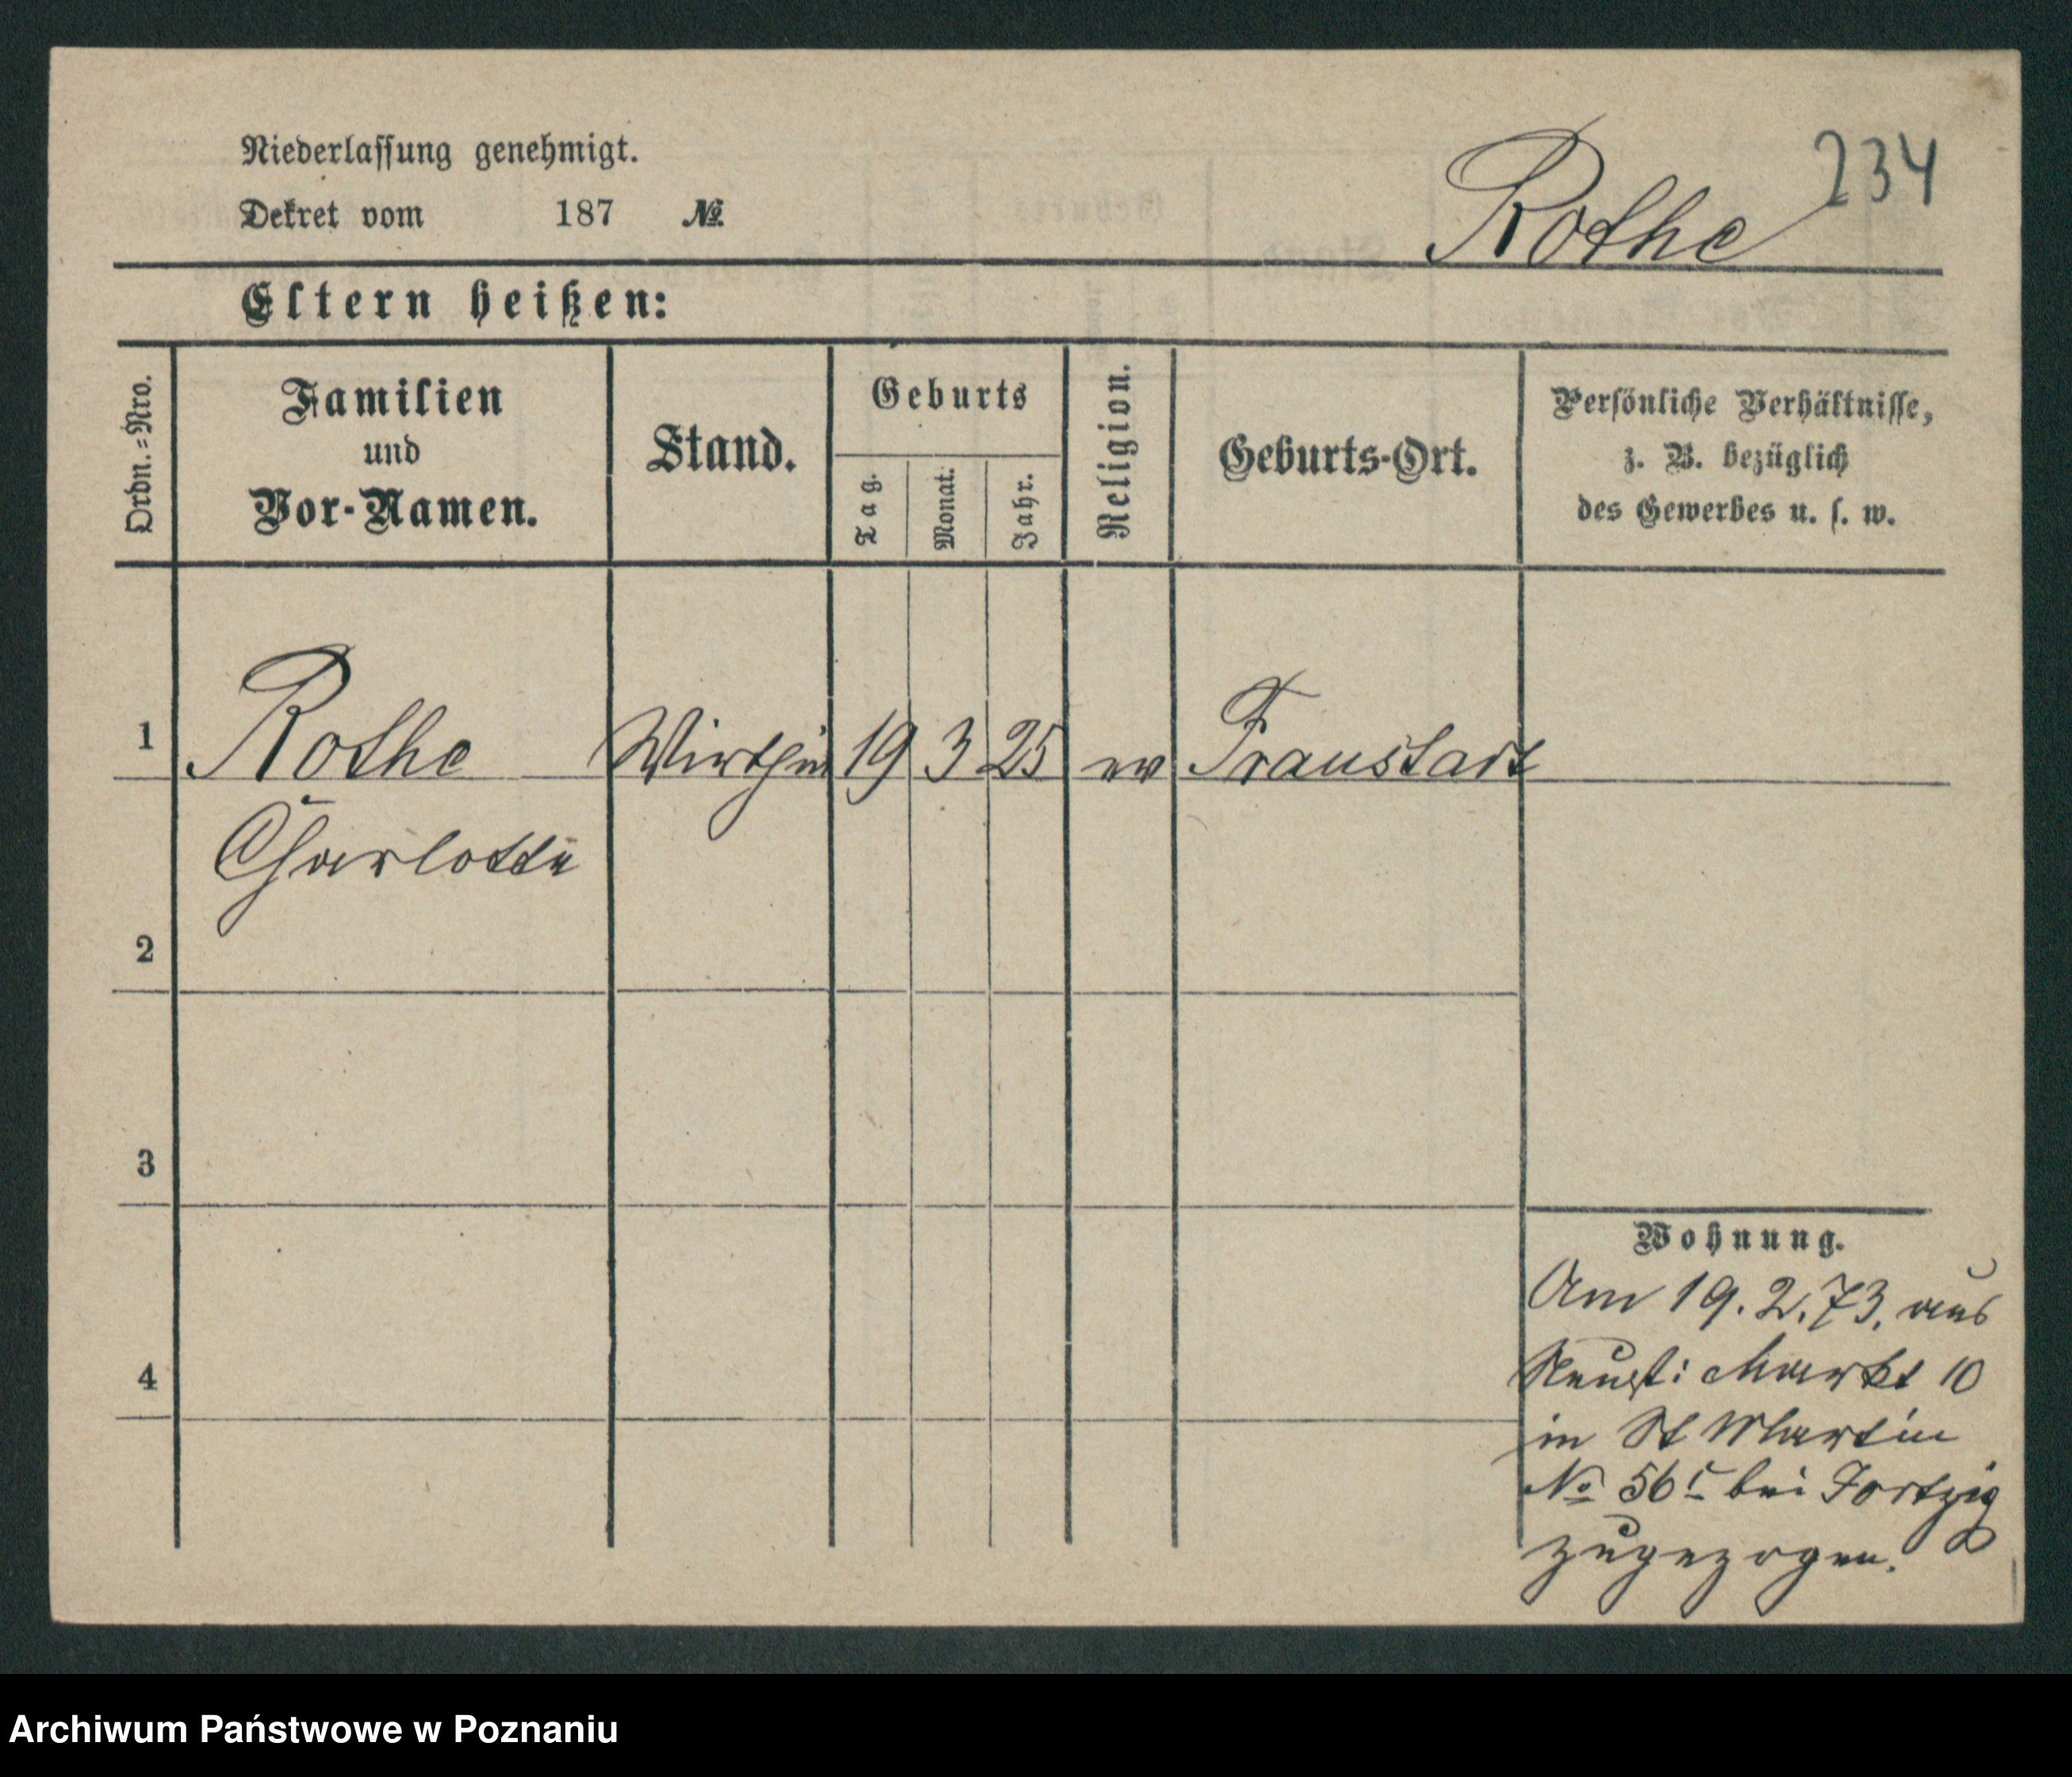 234
Niederlassung genehmigt.
Dekret vom 187 №
Rothe
Eltern heißen:
Ordn.=Nro.
Familien
und
Vor-Namen.
Stand.
Geburts
Tag.
Monat.
Jahr.
Religion.
Geburts-Ort.
Persönliche Verhältnisse,
z. B. bezüglich
des Gewerbes u. s. w.
1 Rothe Wirthin 19 3 25 ev Fraustadt
Charlotte
2
3
Wohnung.
Am 19. 2. 73. aus
Neust: Markt 10
4
in St Martin
№ 56 bei
zugezogen.
Archiwum Państwowe w Poznaniu